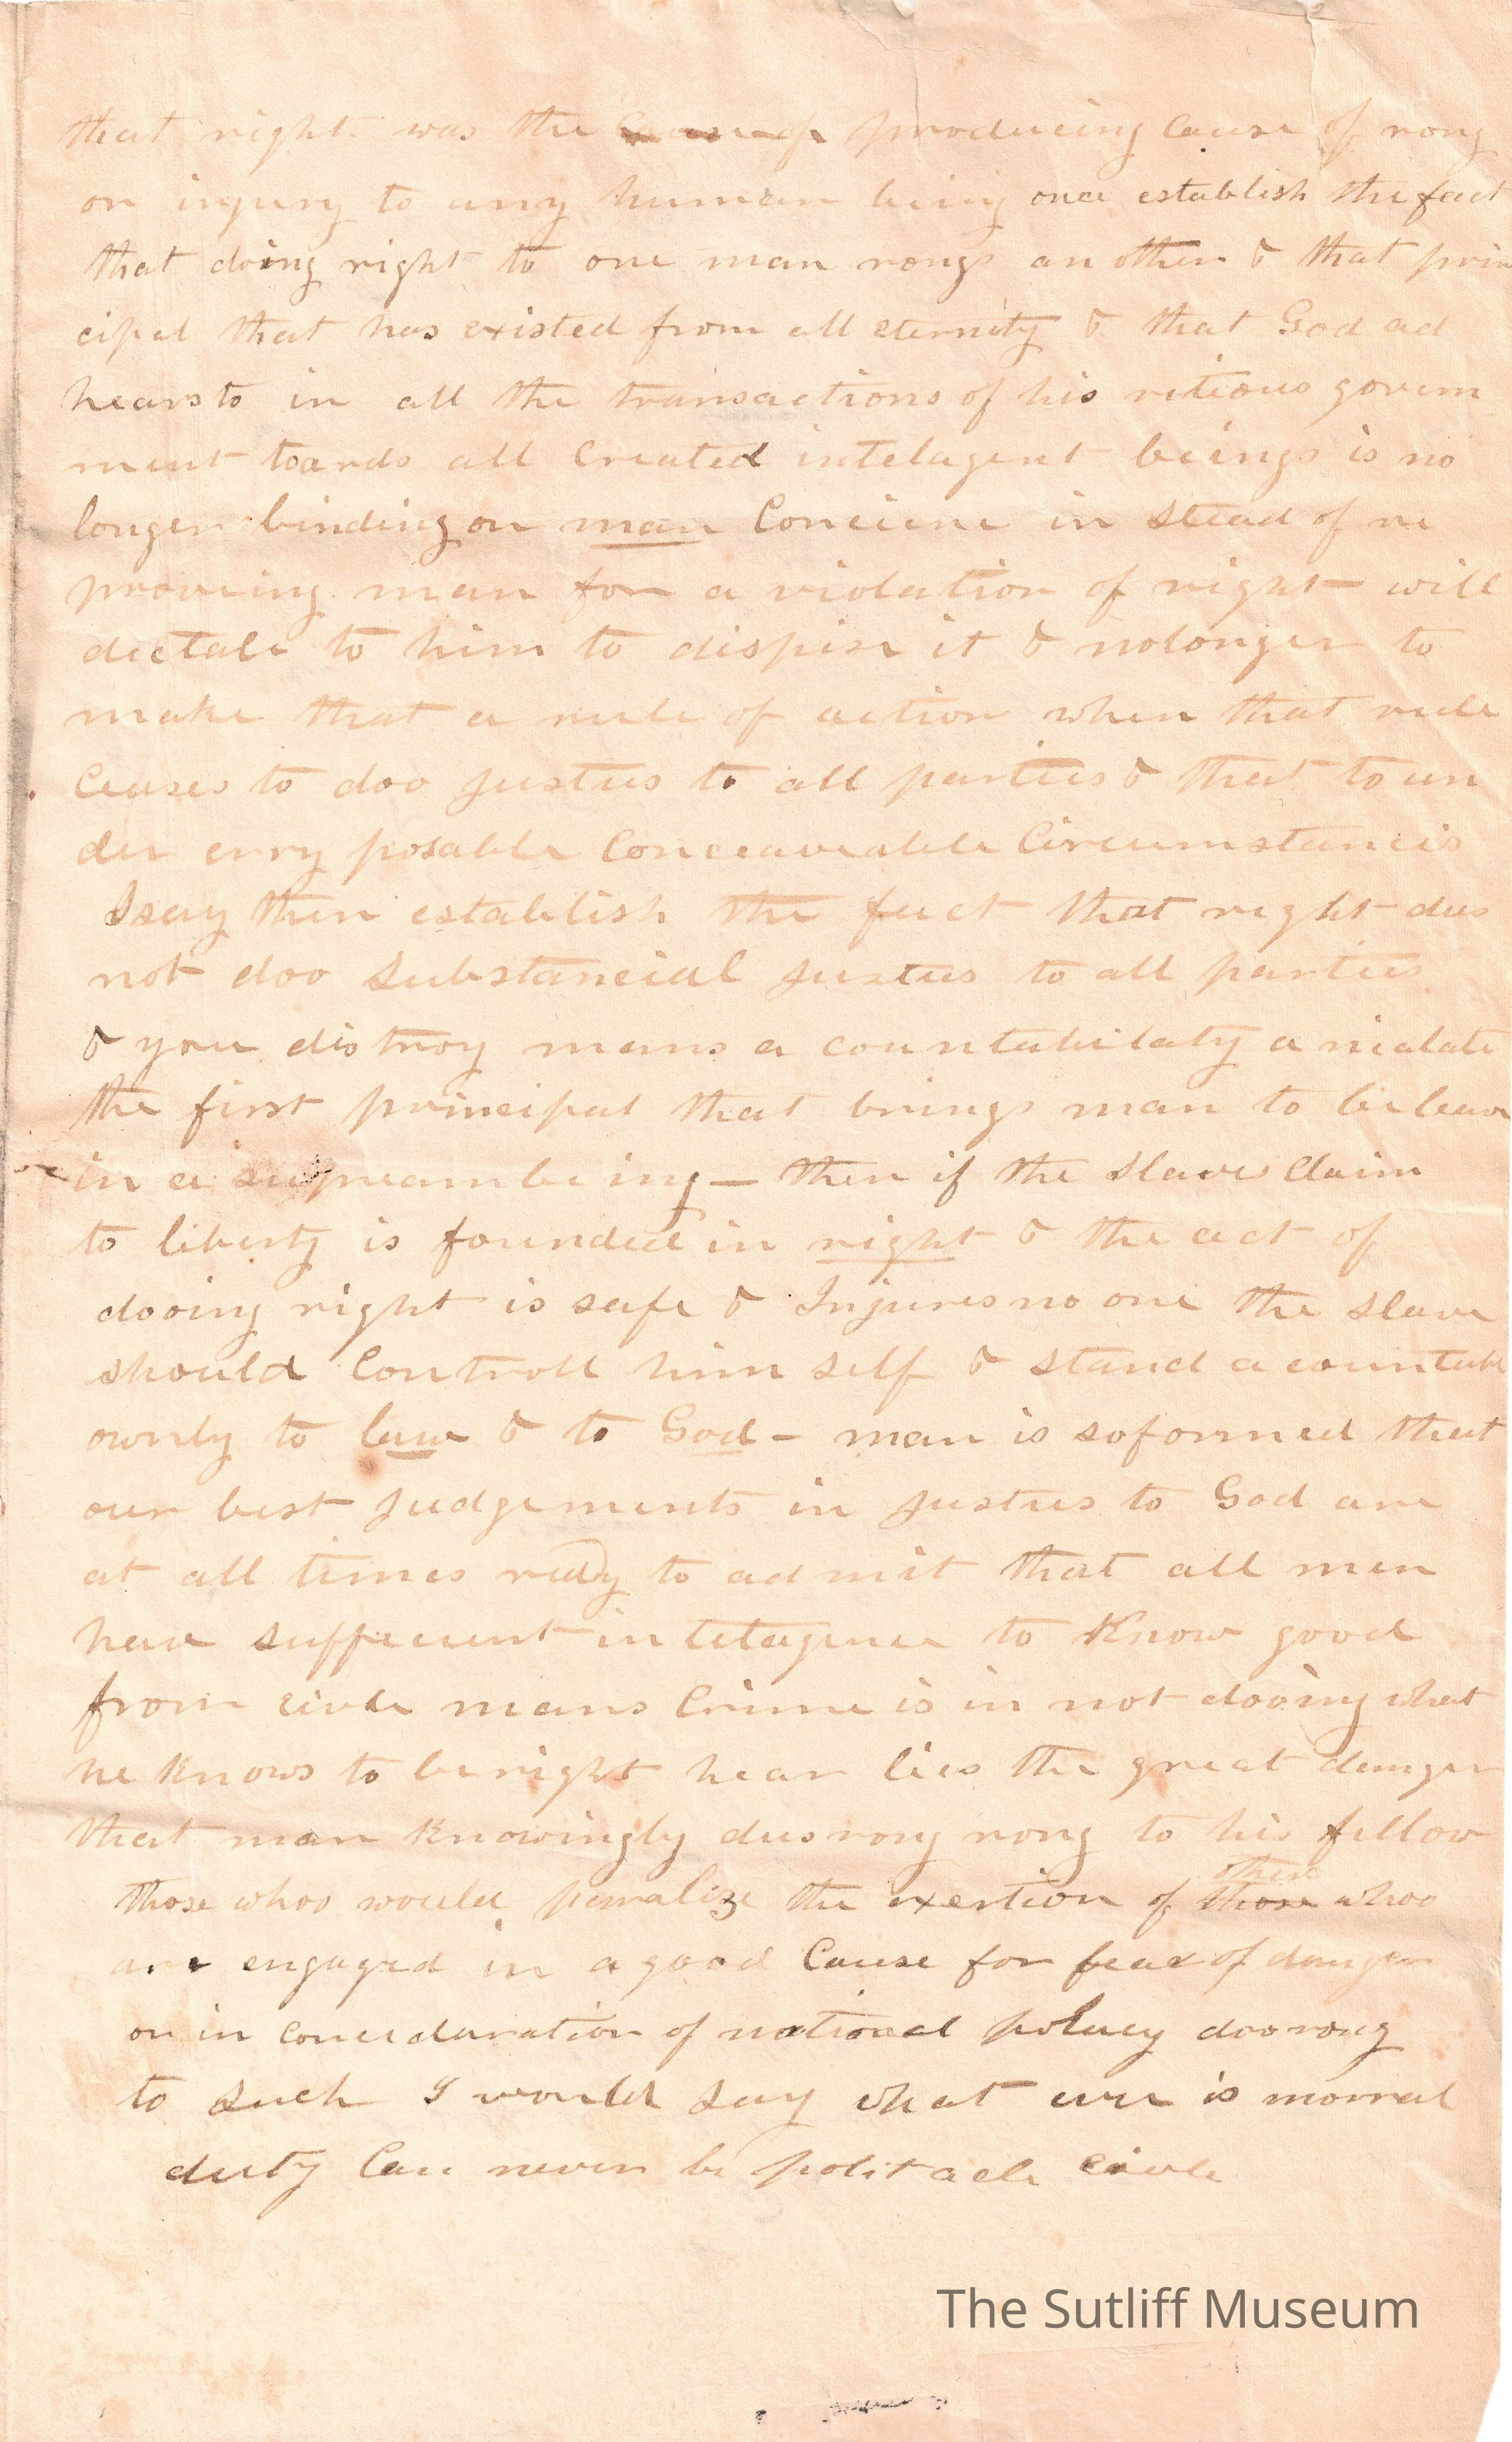 that right was the producing cause of rong
or injury to any human being once establish the fact
that doing right to one man rongs an other & that prin
cipal that has existed from all eternity & that God ad
hears to in all the transactions of his govern
ment toards all Created intelagent beings is no
longer binding on man Conciene in stead of re
proveing man for a violation of right will
dictate to him to dispise it & nolonger to
make that a rule of action when that rule
Ceases to doo justus to all parties & that to un
der evry posable Conceaveable Circumstancis
I say then establish the fact that right dus
not doo Substancial justus to all parties
& you distroy mans a countabilaty
the first principal that brings man to beleave
in a supream be ing — then if the Slaves Claim
to liberty is founded in right & the act of
dooing right is safe & Injures no one the slave
should Controll him self & stand a countabl
ownly to law & to God - man is soformed that
our best judgements in justus to God are
at all times redy to admit that all men
have suffecient intelagence to Know good
from eivle mans Crime is in not dooing what
he Knows to be right hear lies the great danger
that man Knowingly dus rong to his fellow
those whoo would the exertion of those whoo
are engaged in a good Cause for fear of danger
or in concideration of national polucy doo rong
to such I would say what ever is morral
duty Can never be politacle eivle
The Sutliff Museum